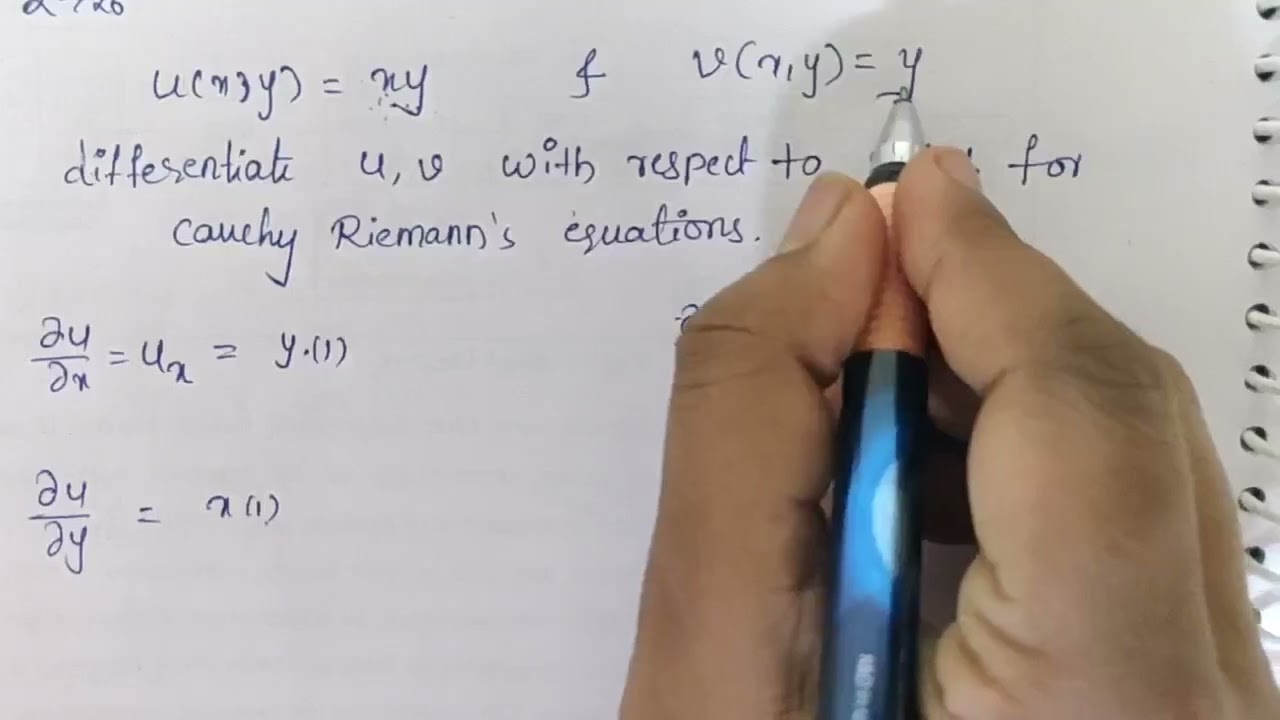 u(x,y) = xy & v(x,y) = y
differentiate u, v with respect to for
Cauchy Riemann's equations.
∂u/∂x = u_x = y.(1)
∂u/∂y = x(1)